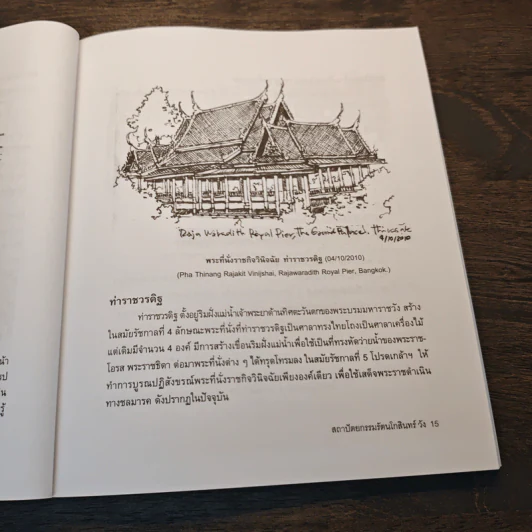 Raja Waradith Royal Pier, The Grand Palace.
9/10/2010
พระที่นั่งราชกิจวินิจฉัย ท่าราชวรดิฐ (04/10/2010)
(Pha Thinang Rajakit Vinijshai, Rajawaradith Royal Pier, Bangkok.)
ท่าราชวรดิฐ
ท่าราชวรดิฐ ตั้งอยู่ริมฝั่งแม่น้ำเจ้าพระยาด้านทิศตะวันตกของพระบรมมหาราชวัง สร้าง
ในสมัยรัชกาลที่ 4 ลักษณะพระที่นั่งที่ท่าราชวรดิฐเป็นศาลาทรงไทยโถงเป็นศาลาเครื่องไม้
แต่เดิมมีจำนวน 4 องค์ มีการสร้างเขื่อนริมฝั่งแม่น้ำเพื่อใช้เป็นที่ทรงหัดว่ายน้ำของพระราช-
โอรส พระราชธิดา ต่อมาพระที่นั่งต่าง ๆ ได้ทรุดโทรมลง ในสมัยรัชกาลที่ 5 โปรดเกล้าฯ ให้
ทำการบูรณปฏิสังขรณ์พระที่นั่งราชกิจวินิจฉัยเพียงองค์เดียว เพื่อใช้เสด็จพระราชดำเนิน
ทางชลมารค ดังปรากฏในปัจจุบัน
สถาปัตยกรรมรัตนโกสินทร์ วัง 15